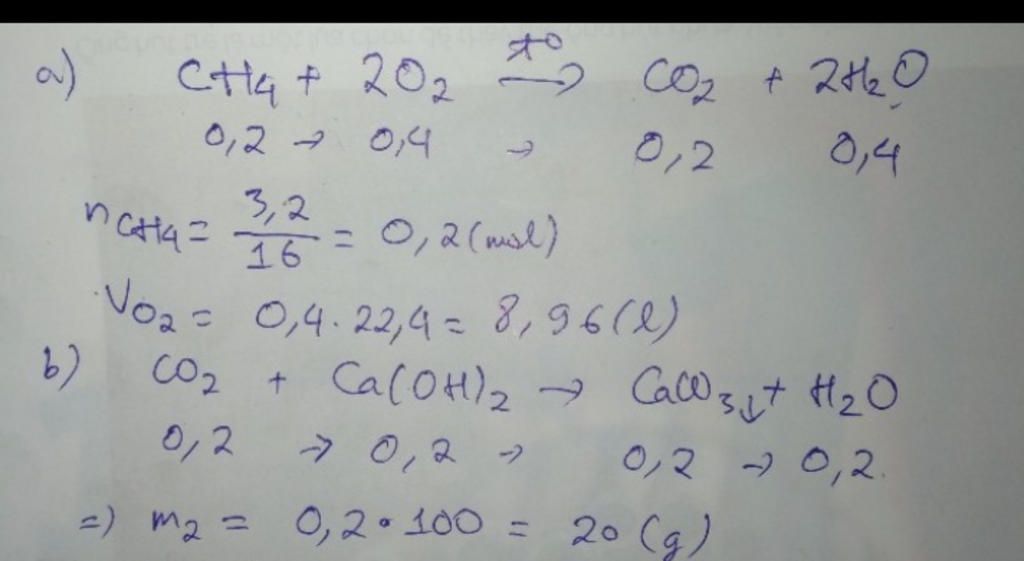 a) CH4 + 2O2 t° → CO2 + 2H2O
0,2 → 0,4 → 0,2 0,4
nCH4 = 3,2/16 = 0,2 (mol)
VO2 = 0,4.22,4 = 8,96 (l)
b) CO2 + Ca(OH)2 → CaCO3↓ + H2O
0,2 → 0,2 → 0,2 → 0,2.
=) m2 = 0,2 • 100 = 20 (g)